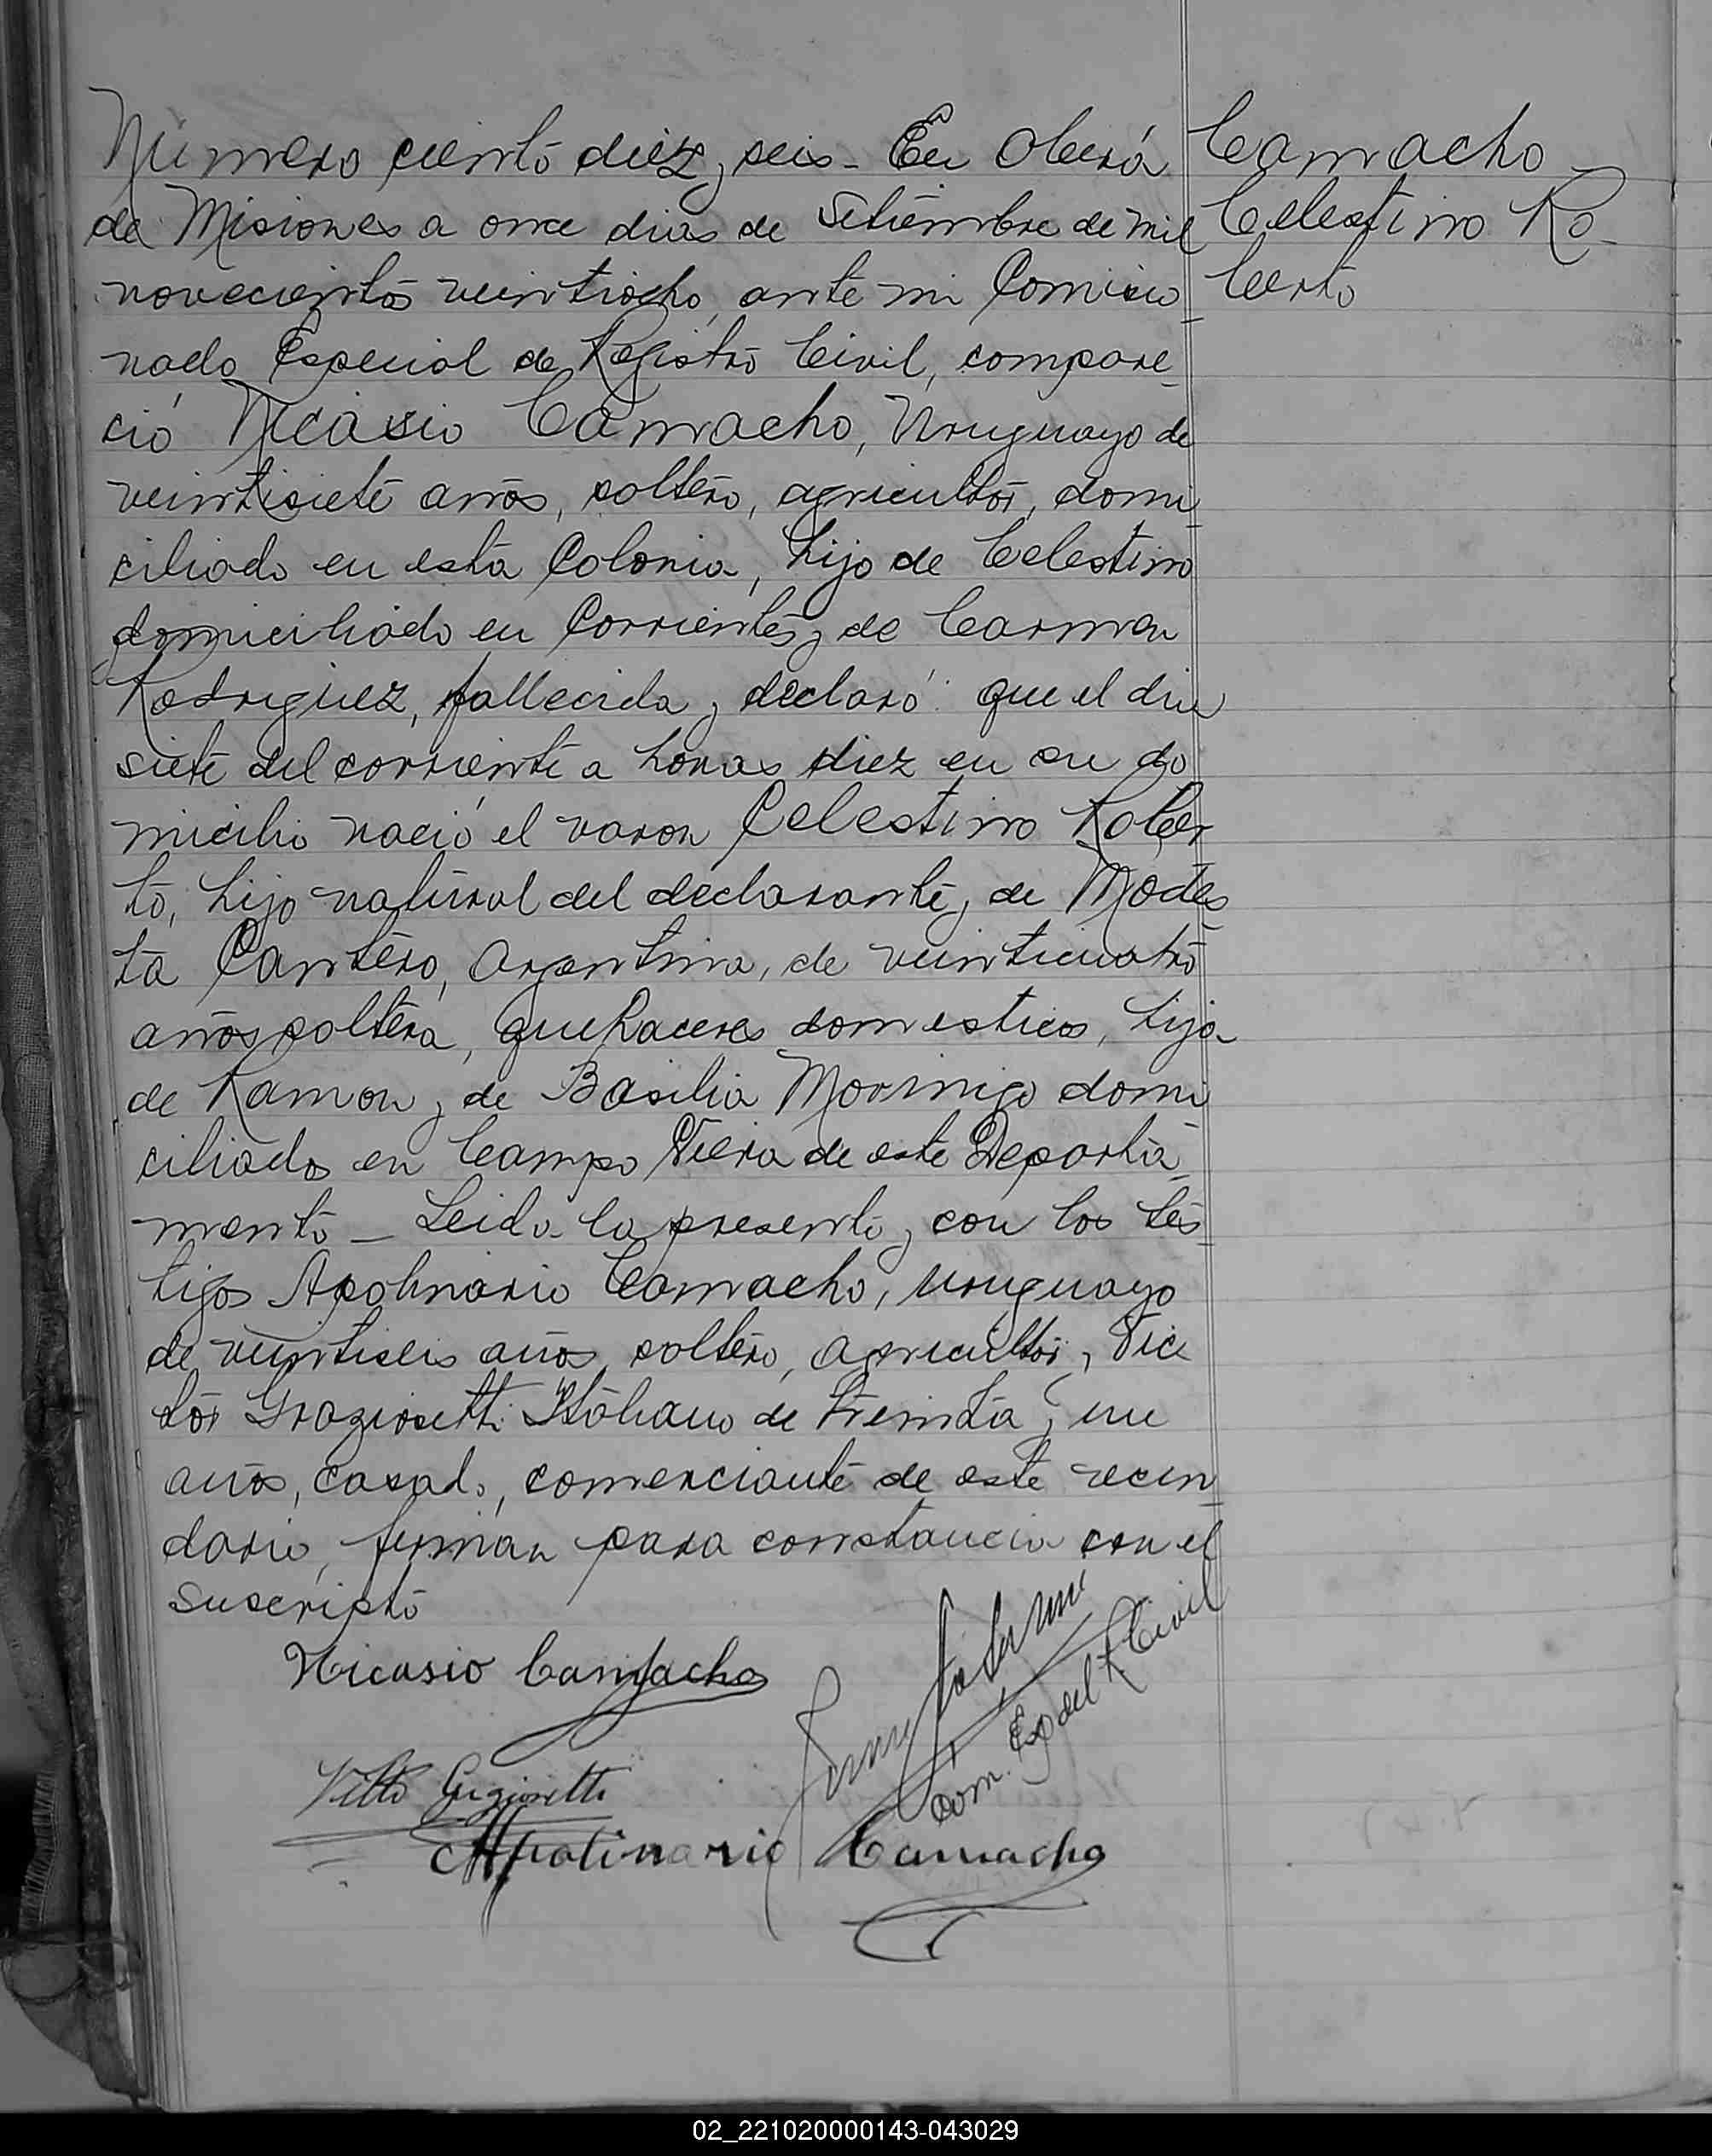 Número ciento diez y seis - En Oberá
de Misiones a once dias de Setiembre de mil
novecientos veintiocho, ante mi Comisio
nado Especial de Registro Civil, compare
ció Nicasio Camacho, Uruguayo de
veintisiete años, soltero, agricultor, domi
ciliado en esta Colonia, hijo de Celestino
domiciliado en Corrientes y de Carmen
Rodriguez, fallecida y declaró: que el dia
siete del corriente a horas diez en su do
micilio nació el varon Celestino Rober
to, hijo natural del declarante y de Modes
ta Cantero, Argentina, de veinticuatro
años soltera, quehaceres domesticos, hija
de Ramon y de Basilia Morinigo domi
ciliados en Campo Viera de este Departa
mento - Leida la presente y con los tes
tigos Apolinario Camacho, uruguayo
de veintiseis años soltero, agricultor y Vic
tor Graziosetti Italiano de treinta y un
años, casado, comerciante de este vecin
dario, firman para constancia con el
suscripto
Camacho
Celestino Ro-
berto
Nicasio Camacho
Com. Esp del R Civil
Apolinario Camacho
02_221020000143-043029